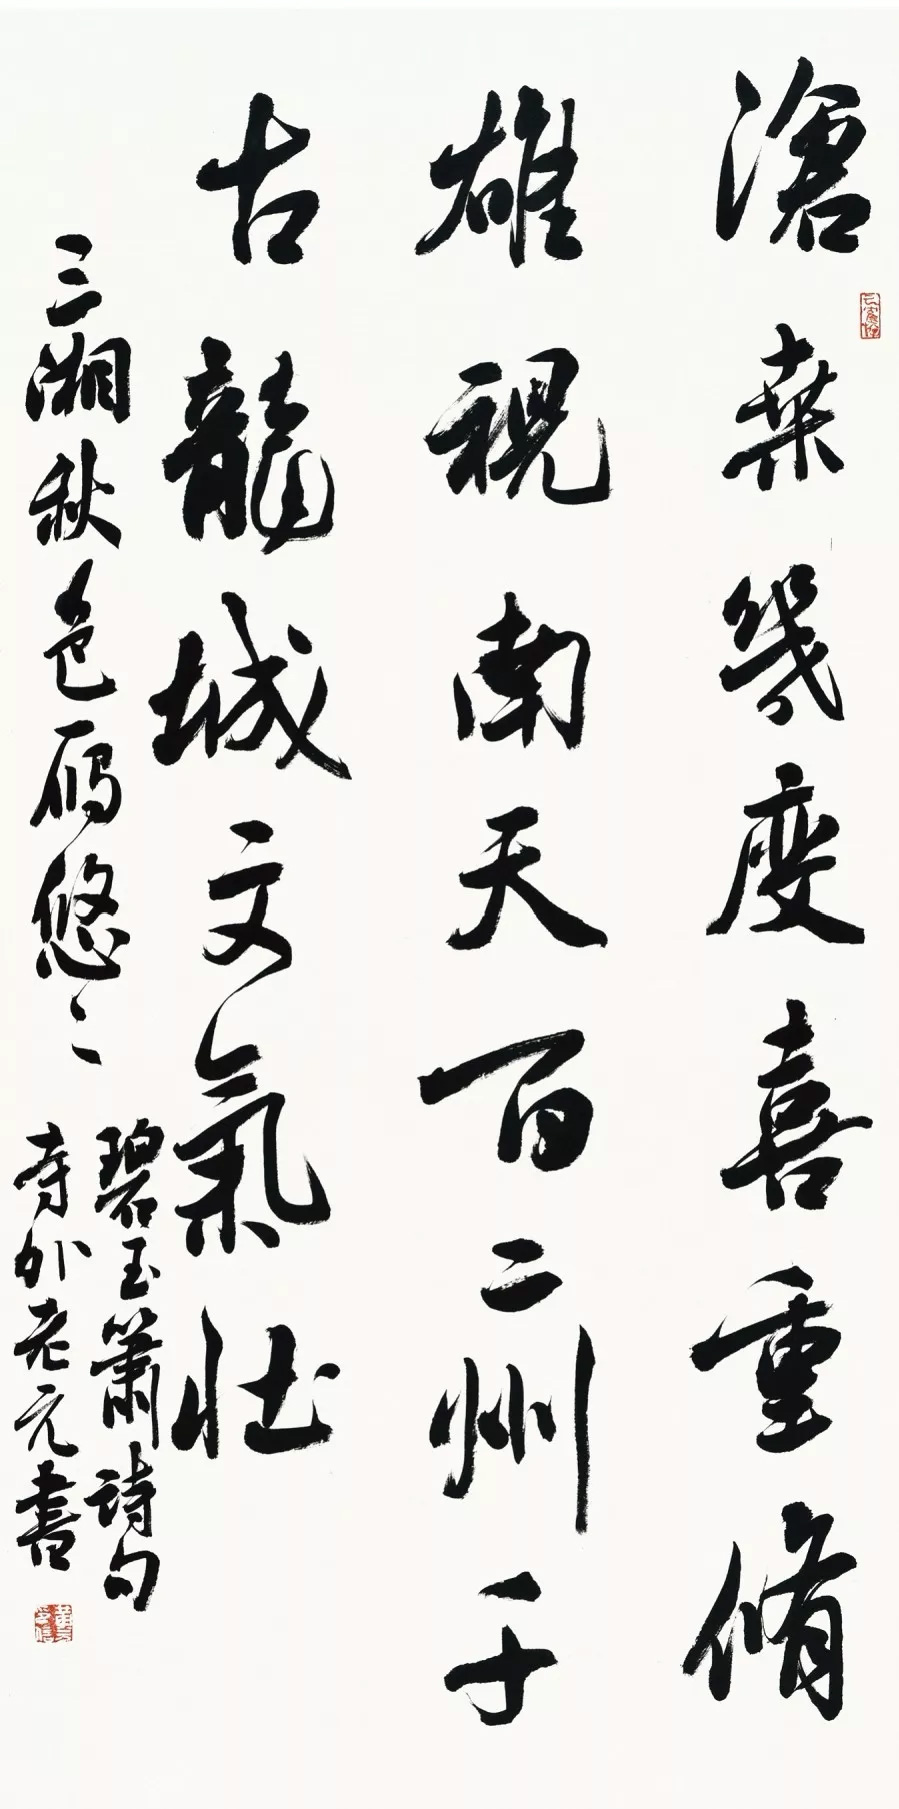 滄桑幾度喜重脩
雄視南天百二州千
古龍城文氣壯
三湘秋色鴈悠々
碧玉簫詩句
寺外老元書